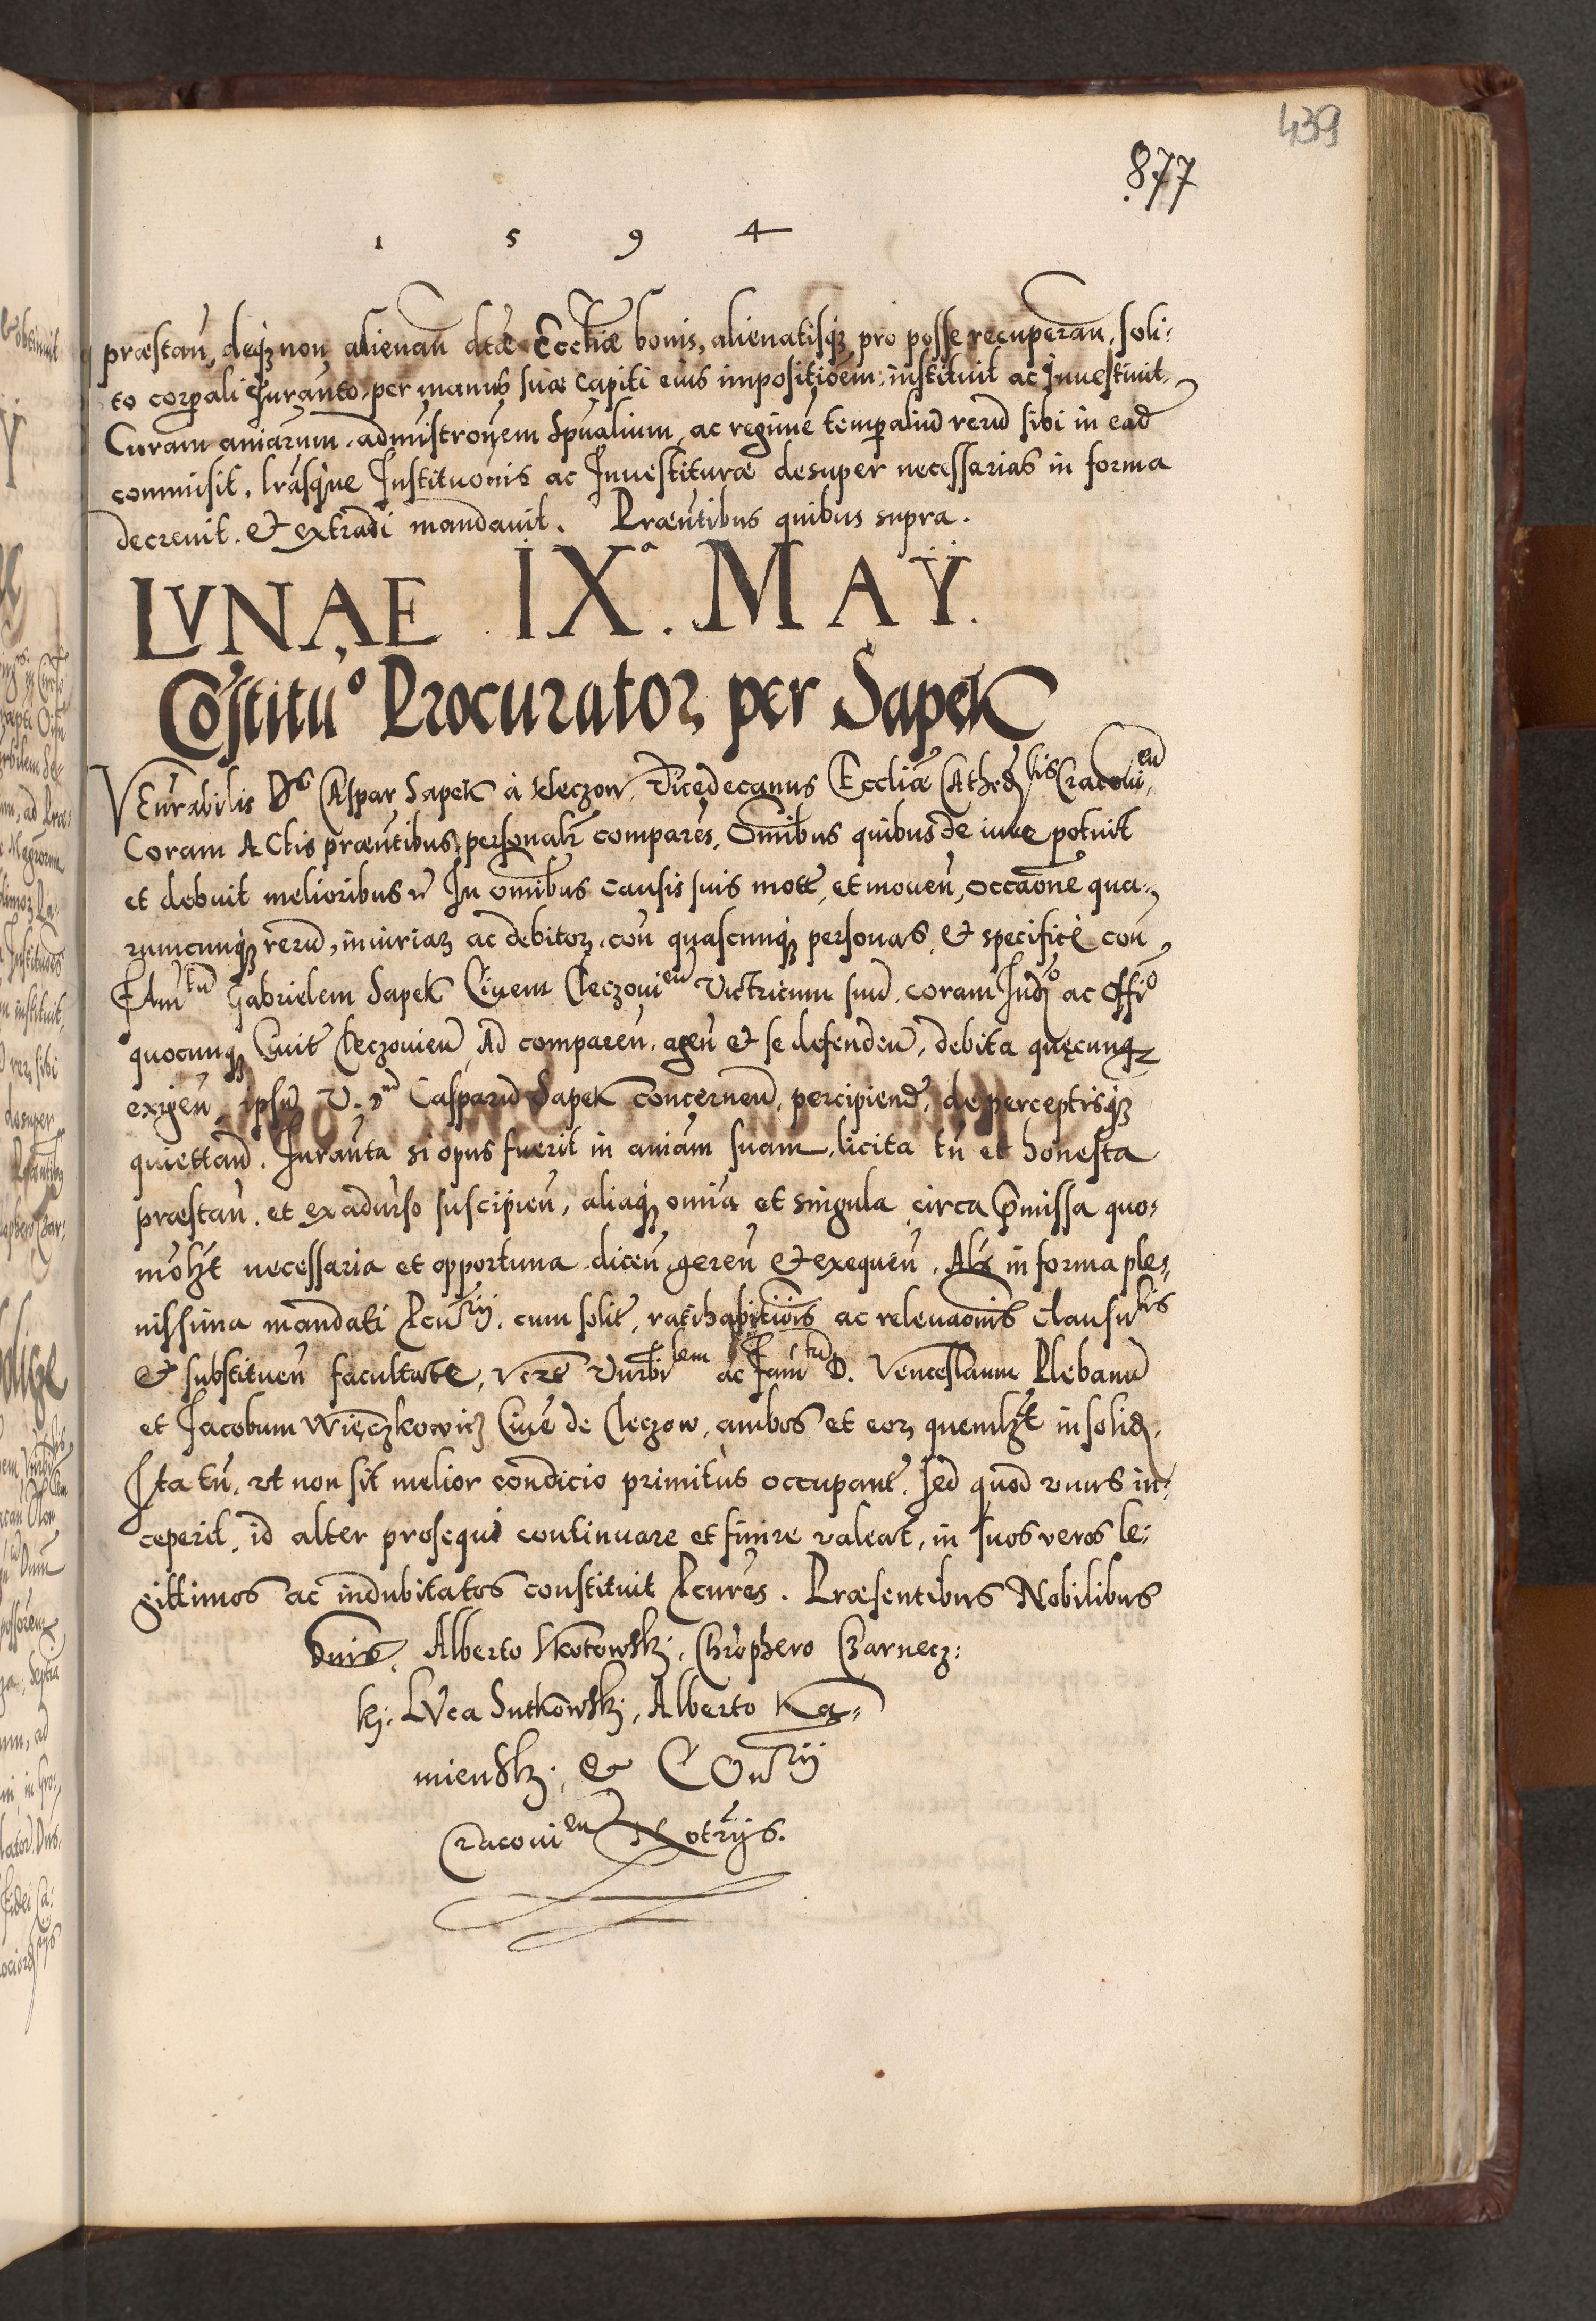 439
877
1 5 9 4
præstan̄, deq̨ʒ non alienan̄ dtæ Eccliæ bonis, alienatisq̨ʒ pro posse recuperan̄, soli-
to corp̄ali Iuran̄to, per manus suæ capiti eius impositiōem, instituit ac Inuestiuit.
Curam aniarum, admistronem Spūalium, ac regimē temp̄aliū rerū sibi in ead̄
commisit, lrāsque Instituōnis ac Inuestituræ desuper necessarias in forma
decreuit. et extradi mandauit. Præn̄tibus quibus supra.
LVNAE IXᵃ. MAŸ.
Cōstituᵒ Procurator per Sapek
Venr̄abilis Dˢ Caspar Sapek à Kleczow, Vicedecanus Eccliæ Cathedˡⁱˢ Cracouiᵉⁿ,
Coram Actis præn̄tibus, personalr̄ comparēs, Omībus quibus de iure potuit
et debuit melioribus In omībus causis suis mot̄, et mouen̄, occaōne qua-
rumcunq̨ʒ rerū, iniuriaꝝ ac debitoꝝ, con̄ quascunq̨ʒ personas, et specificè con̄
Famᵗᵘ̄ Gabrielem Sapek Ciuem Cleczouiᵉⁿ Victricum suū, coram Iudᵒ ac Offiᵒ
quocunq̨ʒ Ciuit̄ Cleczouien̄, Ad comparen̄, agen̄ et se defenden̄, debita quęcunq̨ʒ
exigen̄, ipsū V. Dⁿᵘ̄ Casparū Sapek concernen̄, percipiend̄, de perceptisq̨ʒ
quiettand̄. Iuran̄ta si opus fuerit in aniam suam, licita tn̄ et honesta
præstan̄. et ex adurso suscipien̄, aliaq̨ʒ omīa et singula, circa p̄missa quo-
mōlʒt necessaria et opportuna dicen̄, geren̄ et exequen̄. Alr̄ in forma ple-
nissima mandati Pcuʳⁱʲ. cum solit̄, ratihabitiōis ac releuaōnis clausuˡⁱˢ
et substituen̄ facultate, Vnr̄biˡᵉᵐ ac Famᵗᵘ̄ D. Venceslaum Plebanū
et Jacobum Więczkowicz Ciuē de Cleczow, ambos et eoꝝ quemlʒt in solid.
Ita tn̄, vt non sit melior condicio primitùs occupant̄. sed quod vnus in-
ceperit, id alter prosequi continuare et finire valeat, in suos veros le-
gittimos ac indubitatos constituit Pcurēs. Præsentibus Nobilibus
Dnis. Alberto Skotowskj, Chrōphero Czarnecz-
kj, Lvca Sutkowskj, Alberto Ka-
mienskj, et Conʳⁱʲ
Cracouiᵉⁿ Notrijs.